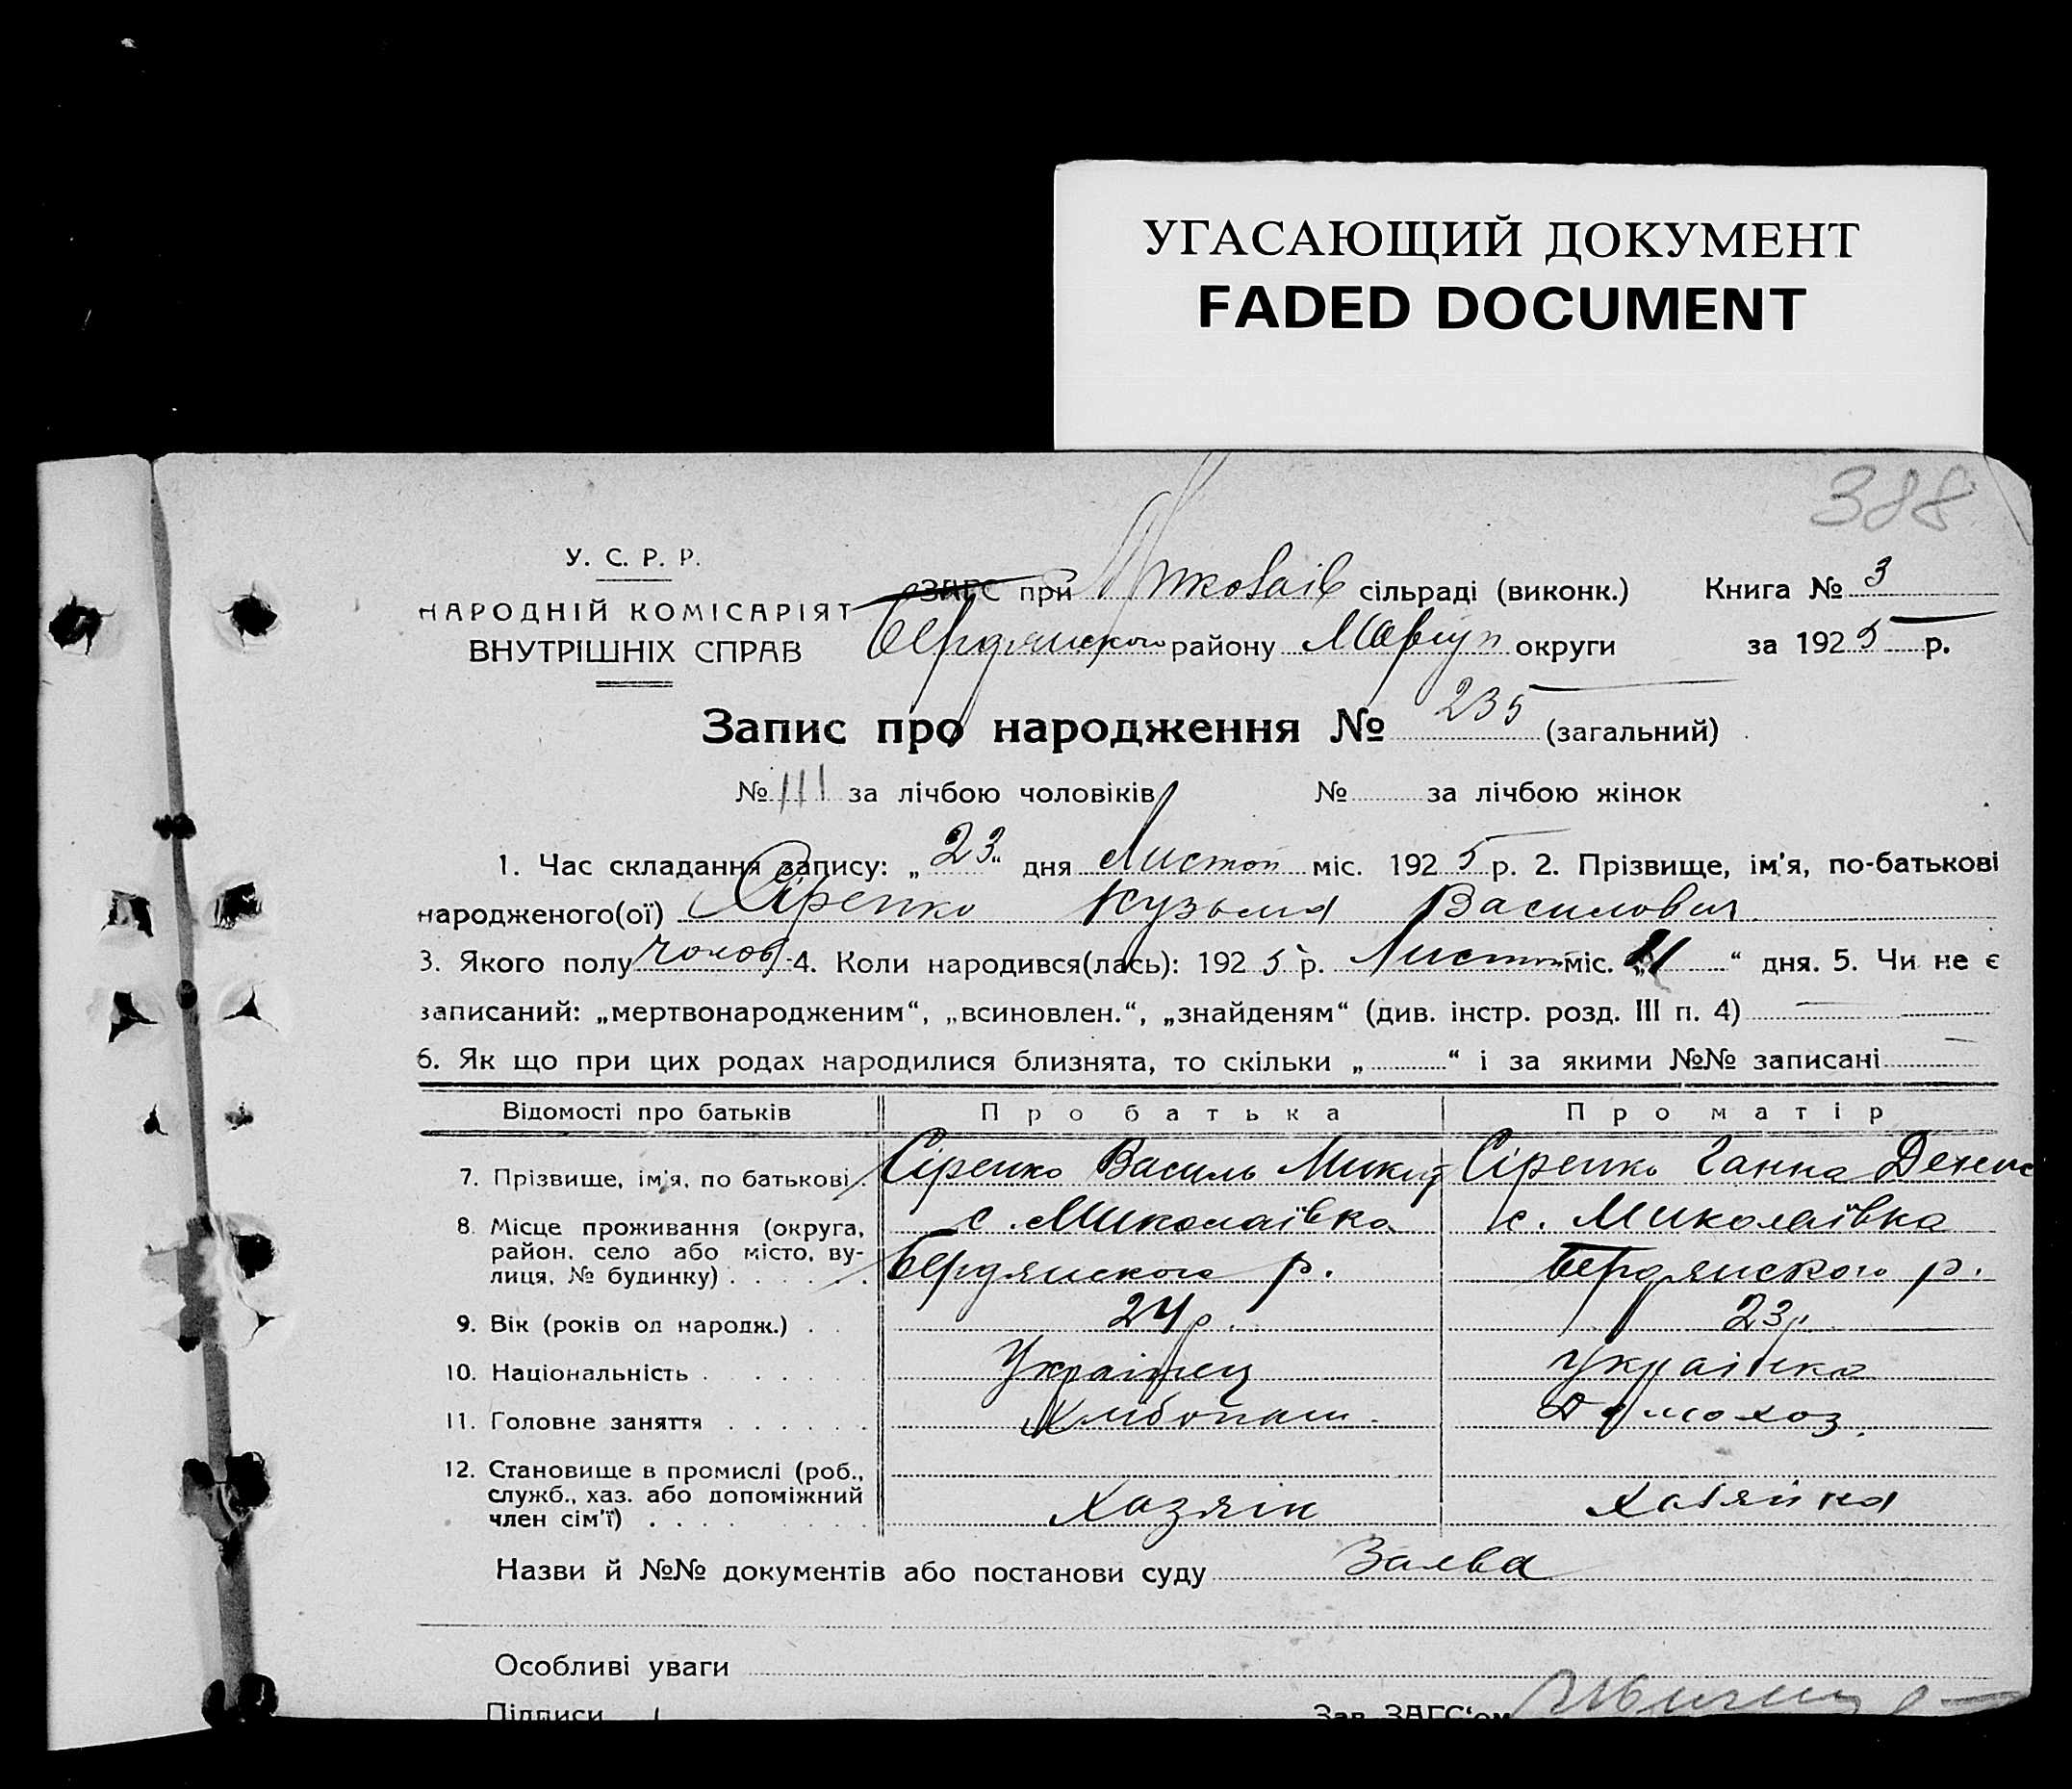 УГАСАЮЩИЙ ДОКУМЕНТ
FADED DOCUMENT
388
У. С. Р. Р.
НАРОДНІЙ КОМІСАРІЯТ
ВНУТРІШНІХ СПРАВ
ЗАГС при Миколаів сільраді (виконк.) Книга № 3
Бердянського району Маріуп округи за 1925 р.
Запис про народження № 235 (загальний)
№ 111 за лічбою чоловіків № за лічбою жінок
1. Час складання запису: „23“ дня Листоп міс. 1925 р. 2. Прізвище, ім'я, по-батькові
народженого(ої) Сіренко Кузьма Василович
3. Якого полу чолов. 4. Коли народився(лась): 1925 р. Листоп міс. „21“ дня. 5. Чи не є
записаний: „мертвонародженим“, „всиновлен.“, „знайденям“ (див. інстр. розд. III п. 4)
6. Як що при цих родах народилися близнята, то скільки „ “ і за якими №№ записані
Відомості про батьків Про батька Про матір
7. Прізвище, ім'я, по батькові . Сіренко Василь Микит Сіренко Ганна Денис
8. Місце проживання (округа, район, село або місто, вулиця, № будинку) с. Миколаївка с. Миколаївка
Бердянского р. Бердянского р.
9. Вік (років од народж.) 24 р. 23 р.
10. Національність Украінец Украінка
11. Головне заняття Хлібопаш. Домохоз.
12. Становище в промислі (роб.,
служб., хаз. або допоміжний
член сім'ї) Хазяін Хазяйка
Назви й №№ документів або постанови суду Заява
Особливі уваги
Підписи Зав. ЗАГС‘ом